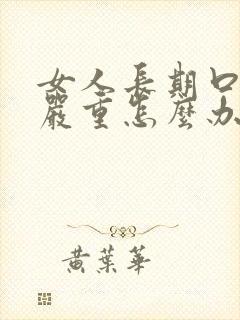 女人長期口
嚴重怎麼办
黃葉華